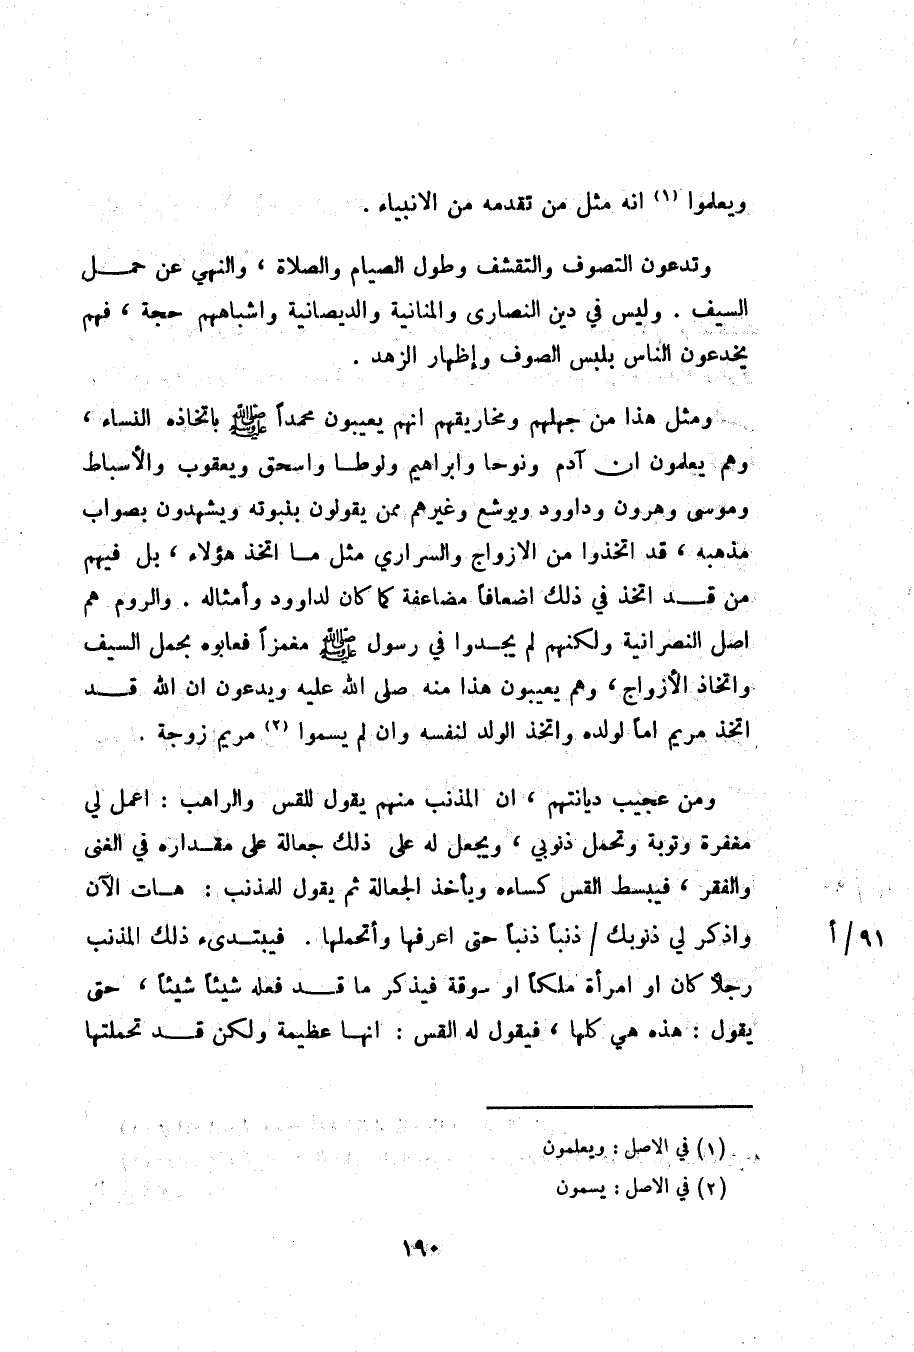 ويعلموا (١) انه مثل من تقدمه من الانبياء .
وتدعون التصوف والتقشف وطول الصيام والصلاة ، والنهي عن حمــل
السيف . وليس في دين النصارى والمنانية والديصانية واشباههم حجة ، فهم
يخدعون الناس بلبس الصوف وإظهار الزهد .
ومثل هذا من جهلهم ومخاريقهم انهم يعيبون محمداً ﷺ باتخاذه النساء ،
وهم يعلمون ان آدم ونوحا وابراهيم ولوطــا واسحق ويعقوب والأسباط
وموسى وهرون وداوود ويوشع وغيرهم ممن يقولون بنبوته ويشهدون بصواب
مذهبه ، قد اتخذوا من الازواج والسراري مثل مــا اتخذ هؤلاء ، بل فيهم
من قــد اتخذ في ذلك اضعافاً مضاعفة كما كان لداوود وأمثاله . والروم هم
اصل النصرانية ولكنهم لم يجــدوا في رسول ﷺ مغمزاً فعابوه بحمل السيف
واتخاذ الأزواج ، وهم يعيبون هذا منه صلى الله عليه ويدعون ان الله قــد
اتخذ مريم اماً لولده واتخذ الولد لنفسه وان لم يسموا (٢) مريم زوجة .
ومن عجيب ديانتهم ، ان المذنب منهم يقول للقس والراهب : اعمل لي
مغفرة وتوبة وتحمل ذنوبي ، ويجعل له على ذلك جعالة على مقــداره في الغنى
والفقر ، فيبسط القس كساءه ويأخذ الجعالة ثم يقول للمذنب : هــات الآن
واذكر لي ذنوبك / ذنباً ذنباً حتى اعرفها وأتحملها . فيبتــدىء ذلك المذنب
٩١/أ
رجلاً كان او امرأة ملكاً او سوقة فيذكر ما قــد فعله شيئاً شيئاً ، حتى
يقول : هذه هي كلها ، فيقول له القس : انهــا عظيمة ولكن قــد تحملتها
(١) في الاصل : ويعلمون
(٢) في الاصل : يسمون
١٩٠